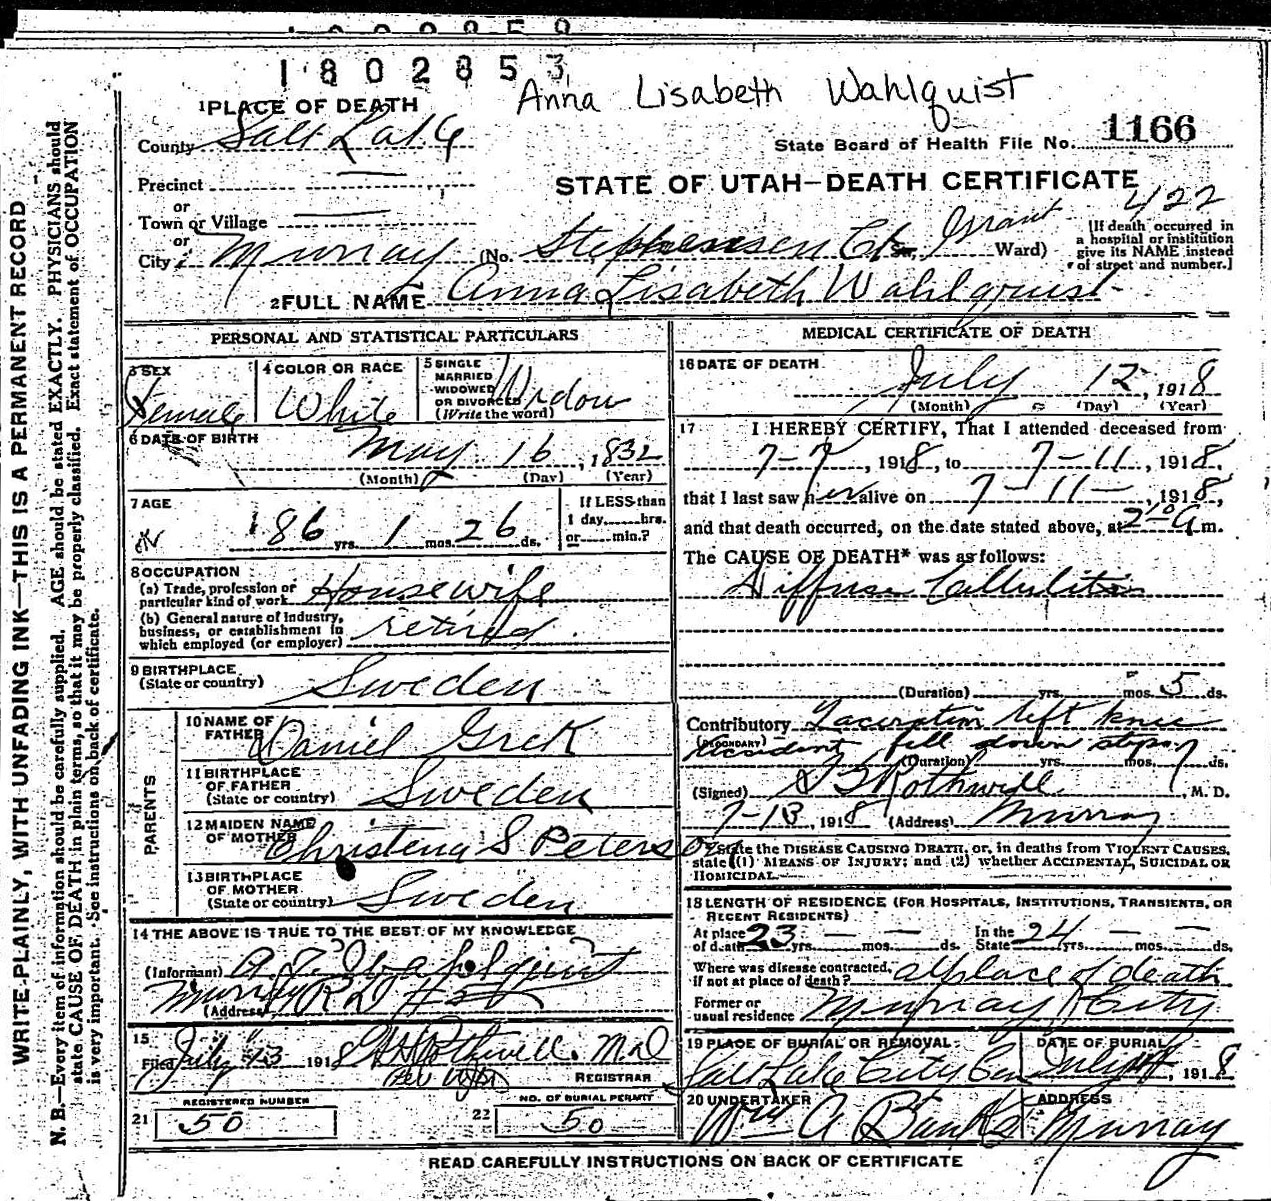 1802853
Anna Lisabeth Wahlquist
1 PLACE OF DEATH
County Salt Lake
State Board of Health File No. 1166
Precinct
or
STATE OF UTAH—DEATH CERTIFICATE
422
Town or Village
or
City Murray (No. Stephensen Grant Ward)
[If death occurred in
a hospital or institution
give its NAME instead
of street and number.]
2 FULL NAME Anna Lisabeth Wahlquist
PERSONAL AND STATISTICAL PARTICULARS
3 SEX
Female
4 COLOR OR RACE
White
5 SINGLE
MARRIED
WIDOWED
OR DIVORCED
(Write the word)
Widow
6 DATE OF BIRTH
May 16, 1832
(Month) (Day) (Year)
7 AGE
86 yrs. 1 mos. 26 ds.
If LESS than
1 day,......hrs.
or......min.?
8 OCCUPATION
(a) Trade, profession or
particular kind of work Housewife
(b) General nature of industry,
business, or establishment in
which employed (or employer) retired
9 BIRTHPLACE
(State or country) Sweden
PARENTS
10 NAME OF
FATHER Daniel
11 BIRTHPLACE
OF FATHER
(State or country) Sweden
12 MAIDEN NAME
OF MOTHER Christena S Peterson
13 BIRTHPLACE
OF MOTHER
(State or country) Sweden
14 THE ABOVE IS TRUE TO THE BEST OF MY KNOWLEDGE
(Informant) Wahlquist
(Address) Murray
15
Filed July 13 1918 Rothwell. Md
REGISTRAR
REGISTERED NUMBER
21 50
NO. OF BURIAL PERMIT
22 50
MEDICAL CERTIFICATE OF DEATH
16 DATE OF DEATH
July 12, 1918
(Month) (Day) (Year)
17 I HEREBY CERTIFY, That I attended deceased from
7-7, 1918, to 7-11, 1918,
that I last saw her alive on 7-11-, 1918,
and that death occurred, on the date stated above, at 2 A m.
The CAUSE OF DEATH* was as follows:
Diffuse Cellulitis
(Duration) yrs. mos. 5 ds.
Contributory Laceration left knee
(SECONDARY) Accident fell down steps
(Duration) yrs. mos. 7 ds.
(Signed) Rothwell, M. D.
7-13, 1918 (Address) Murray
*State the DISEASE CAUSING DEATH, or, in deaths from VIOLENT CAUSES,
state (1) MEANS OF INJURY; and (2) whether ACCIDENTAL, SUICIDAL OR
HOMICIDAL.
18 LENGTH OF RESIDENCE (FOR HOSPITALS, INSTITUTIONS, TRANSIENTS, OR
RECENT RESIDENTS)
At place
of death 23 yrs. — mos. — ds.
In the
State 24 yrs. — mos. — ds.
Where was disease contracted,
if not at place of death? at place of death
Former or
usual residence Murray City
19 PLACE OF BURIAL OR REMOVAL
Salt Lake City Cem
DATE OF BURIAL
July, 1918
20 UNDERTAKER
Wm A Banks
ADDRESS
Murray
READ CAREFULLY INSTRUCTIONS ON BACK OF CERTIFICATE
WRITE PLAINLY, WITH UNFADING INK—THIS IS A PERMANENT RECORD
N. B.—Every item of information should be carefully supplied. AGE should be stated EXACTLY. PHYSICIANS should
state CAUSE OF DEATH in plain terms, so that it may be properly classified. Exact statement of OCCUPATION
is very important. See instructions on back of certificate.